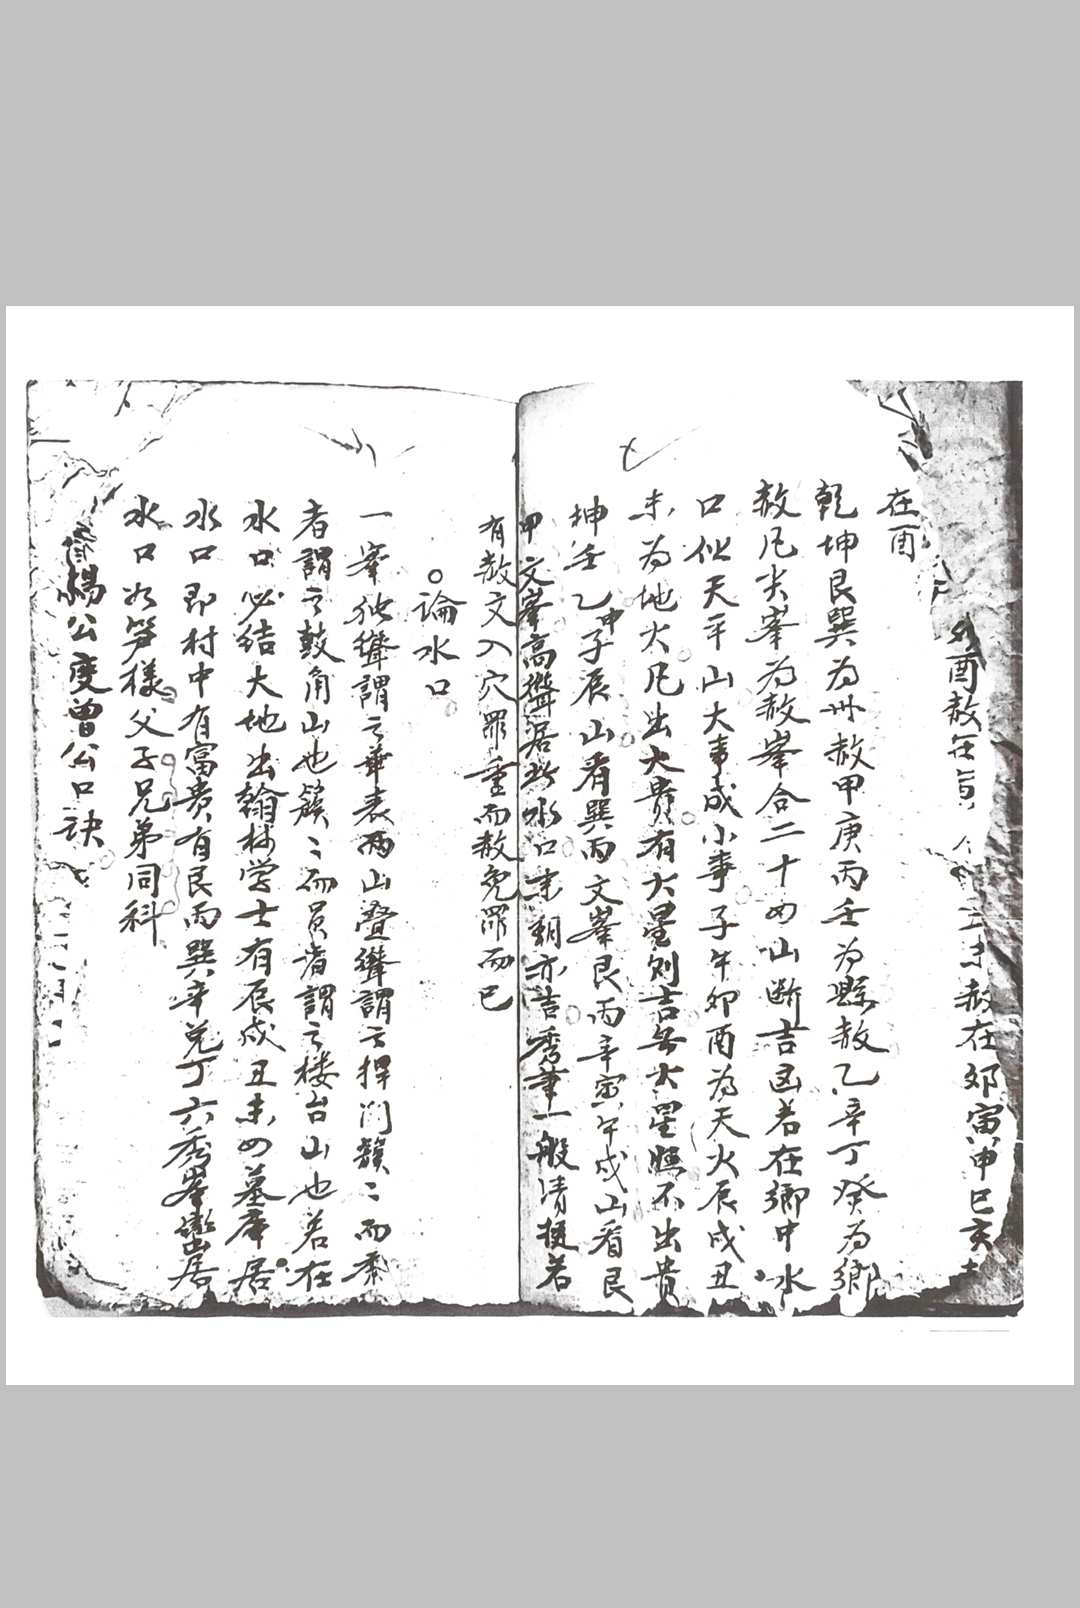 酉赦在 未赦在卯寅申巳亥
在酉
乾坤艮巽為州赦甲庚丙壬為縣赦乙辛丁癸為鄉
赦凡尖峯為赦峯合二十四山断吉凶若在鄉中水
口似天平山大事成小事子午卯酉為天火辰戌丑
未為地火凡出大貴有大星則吉無大星照不出貴
坤壬乙申子辰山看巽丙文峯艮丙辛寅午戌山看艮
甲文峯高聳居於水口來朝亦吉秀筆一般清挺若
有赦文入穴罪重而赦免罪而已
○論水口
一峯独聳謂之華表両山疊聳謂之捍门簇〻而
者謂之鼓角山也簇〻而員者謂之楼台山也若在
水口必結大地出翰林学士有辰戌丑未四墓庫居
水口即村中有富贵有艮丙巽辛兌丁六秀峯巒居
水口如笋樣父子兄弟同科
楊公度曾公口訣